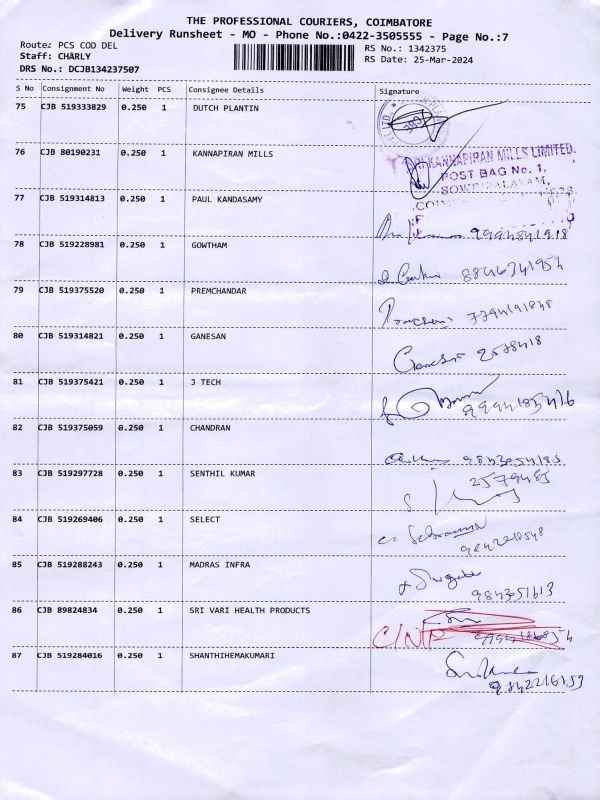 THE PROFESSIONAL COURIERS, COIMBATORE
Delivery Runsheet - MO - Phone No.:0422-3505555 - Page No.:7
Route: PCS COD DEL
RS No.: 1342375
Staff: CHARLY
RS Date: 25-Mar-2024
DRS No.: DCJB134237507
S No Consignment No Weight PCS Consignee Details Signature
75 CJB 519333829 0.250 1 DUTCH PLANTIN
76 CJB 80190231 0.250 1 KANNAPIRAN MILLS
KANNAPIRAN MILLS LIMITED.
POST BAG No. 1,
77 CJB 519314813 0.250 1 PAUL KANDASAMY
78 CJB 519228981 0.250 1 GOWTHAM
79 CJB 519375520 0.250 1 PREMCHANDAR
80 CJB 519314821 0.250 1 GANESAN
81 CJB 519375421 0.250 1 J TECH
82 CJB 519375059 0.250 1 CHANDRAN
83 CJB 519297728 0.250 1 SENTHIL KUMAR
2579485
84 CJB 519269406 0.250 1 SELECT
85 CJB 519288243 0.250 1 MADRAS INFRA
86 CJB 89824834 0.250 1 SRI VARI HEALTH PRODUCTS
C/NP
87 CJB 519284016 0.250 1 SHANTHIHEMAKUMARI